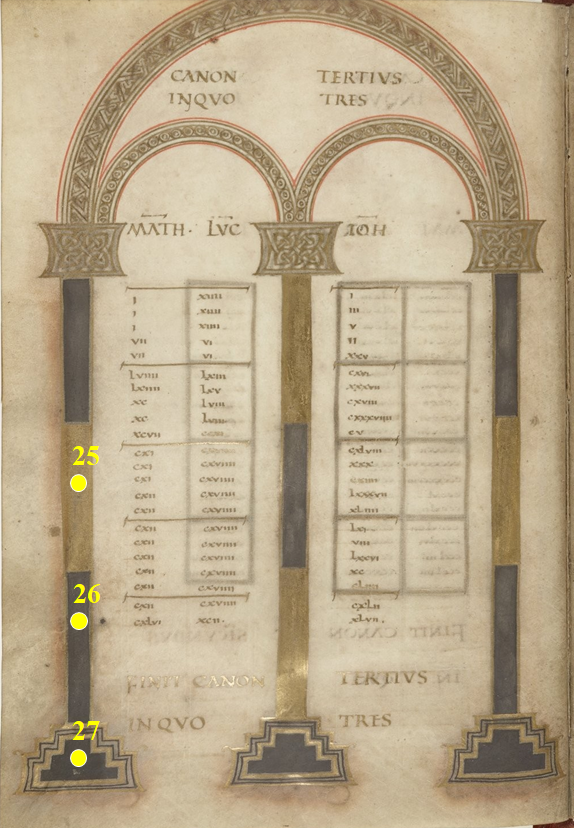 CANON TERTIVS
INQVO TRES
MATH · LVC IOH
I XIIII I
I XIIII III
I XIIII V
VII VI II
VII VI XXV
LVIIII LXIII CXVI
LXIIII LXV XXXVII
XC LVIII CXVIII
XC LVIII CXXXVIIII
XCVII CV
CXI CXVIIII CXLVIII
CXI CXVIIII XXX
25
CXI CXVIIII
CXII CXVIIII LXXXVII
CXII CXVIIII XLIIII
CXII CXVIIII LXI
CXII CXVIIII VIII
CXII CXVIIII LXXVI
CXII CXVIIII XC
CXII CXVIIII
26
CXII CXVIIII CXLII
CXLVI XCII XLVII
FINIT CANON TERTIVS
IN QVO TRES
27